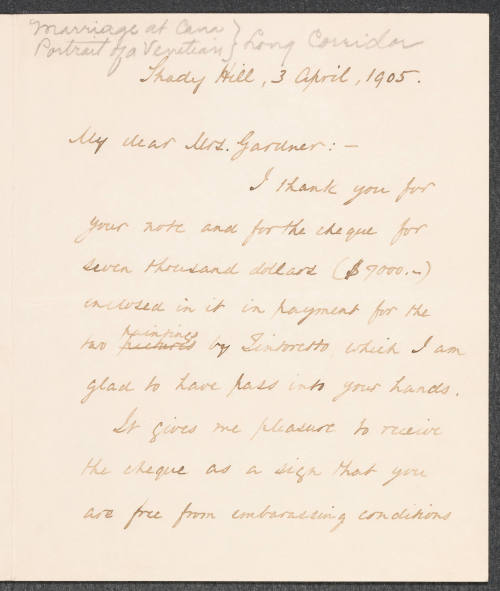 Marriage at Cana } Long Corridor
Portrait of a Venetian
Shady Hill, 3 April, 1905.
My dear Mrs. Gardner: -
I thank you for
your note and for the cheque for
seven thousand dollars ($7000.-)
enclosed in it in payment for the
paintings
two pictures by Tintoretto, which I am
glad to have pass into your hands.
It gives me pleasure to receive
the cheque as a sign that you
are free from embarassing conditions